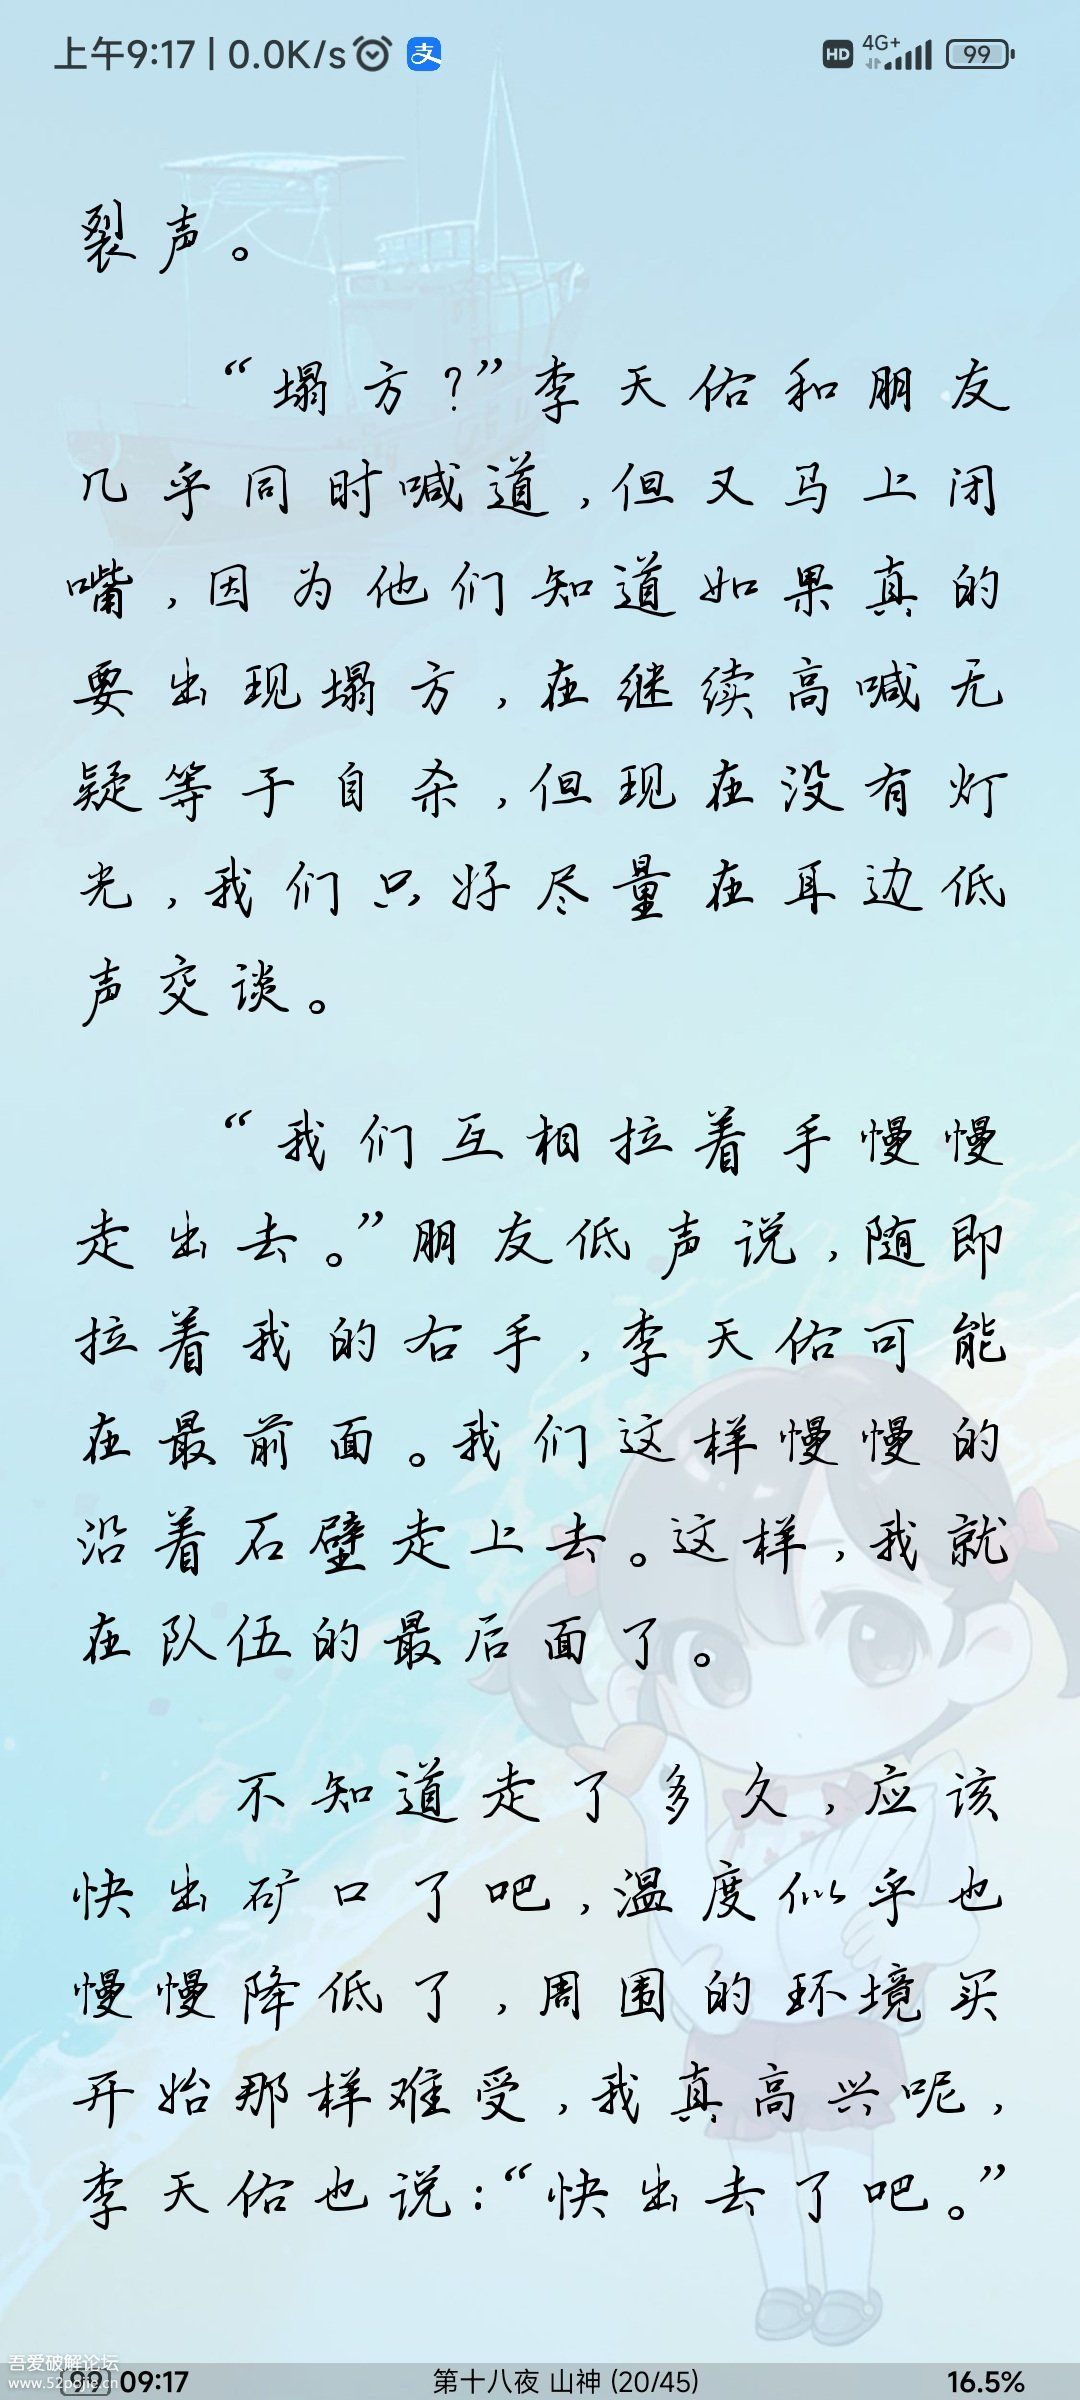 上午9:17 | 0.0K/s 支 HD 4G+ 99
裂声。
“塌方?”李天佑和朋友
几乎同时喊道,但又马上闭
嘴,因为他们知道如果真的
要出现塌方,在继续高喊无
疑等于自杀,但现在没有灯
光,我们只好尽量在耳边低
声交谈。
“我们互相拉着手慢慢
走出去。”朋友低声说,随即
拉着我的右手,李天佑可能
在最前面。我们这样慢慢的
沿着石壁走上去。这样,我就
在队伍的最后面了。
不知道走了多久,应该
快出矿口了吧,温度似乎也
慢慢降低了,周围的环境买
开始那样难受,我真高兴呢,
李天佑也说:“快出去了吧。”
吾爱破解论坛
www.52pojie.cn
99 09:17 第十八夜 山神 (20/45) 16.5%